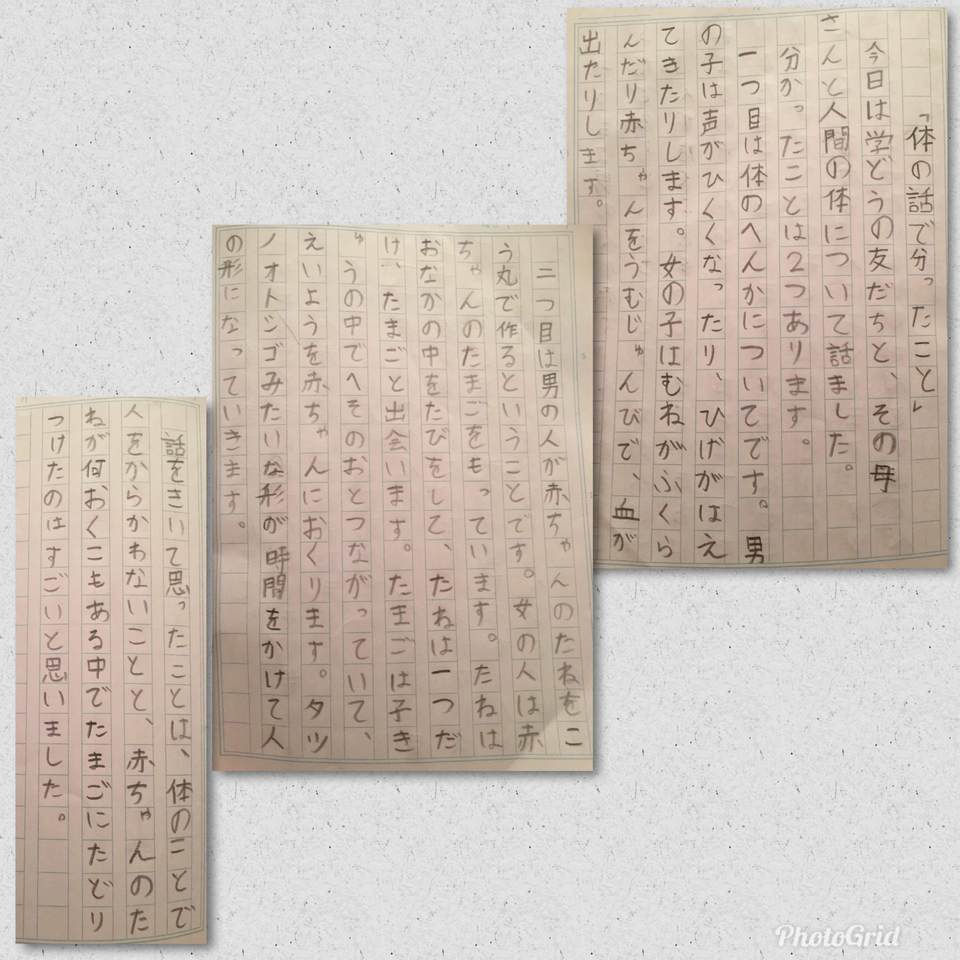 「体の話で分ったこと」
今日は学どうの友だちと、その母
さんと人間の体について話ました。
分かったことは2つあります。
一つ目は体のへんかについてです。男
の子は声がひくくなったり、ひげがはえ
てきたりします。女の子はむねがふくら
んだり赤ちゃんをうむじゅんびで、血が
出たりします。
二つ目は男の人が赤ちゃんのたねをこ
う丸で作るということです。女の人は赤
ちゃんのたまごをもっています。たねは
おなかの中をたびをして、たねは一つだ
け、たまごと出会います。たまごは子き
ゅうの中でへそのおとつながっていて、
えいようを赤ちゃんにおくります。タツ
ノオトシゴみたいな形が時間をかけて人
の形になっていきます。
話をきいて思ったことは、体のことで
人をからかわないことと、赤ちゃんのた
ねが何おくこもある中でたまごにたどり
つけたのはすごいと思いました。
PhotoGrid